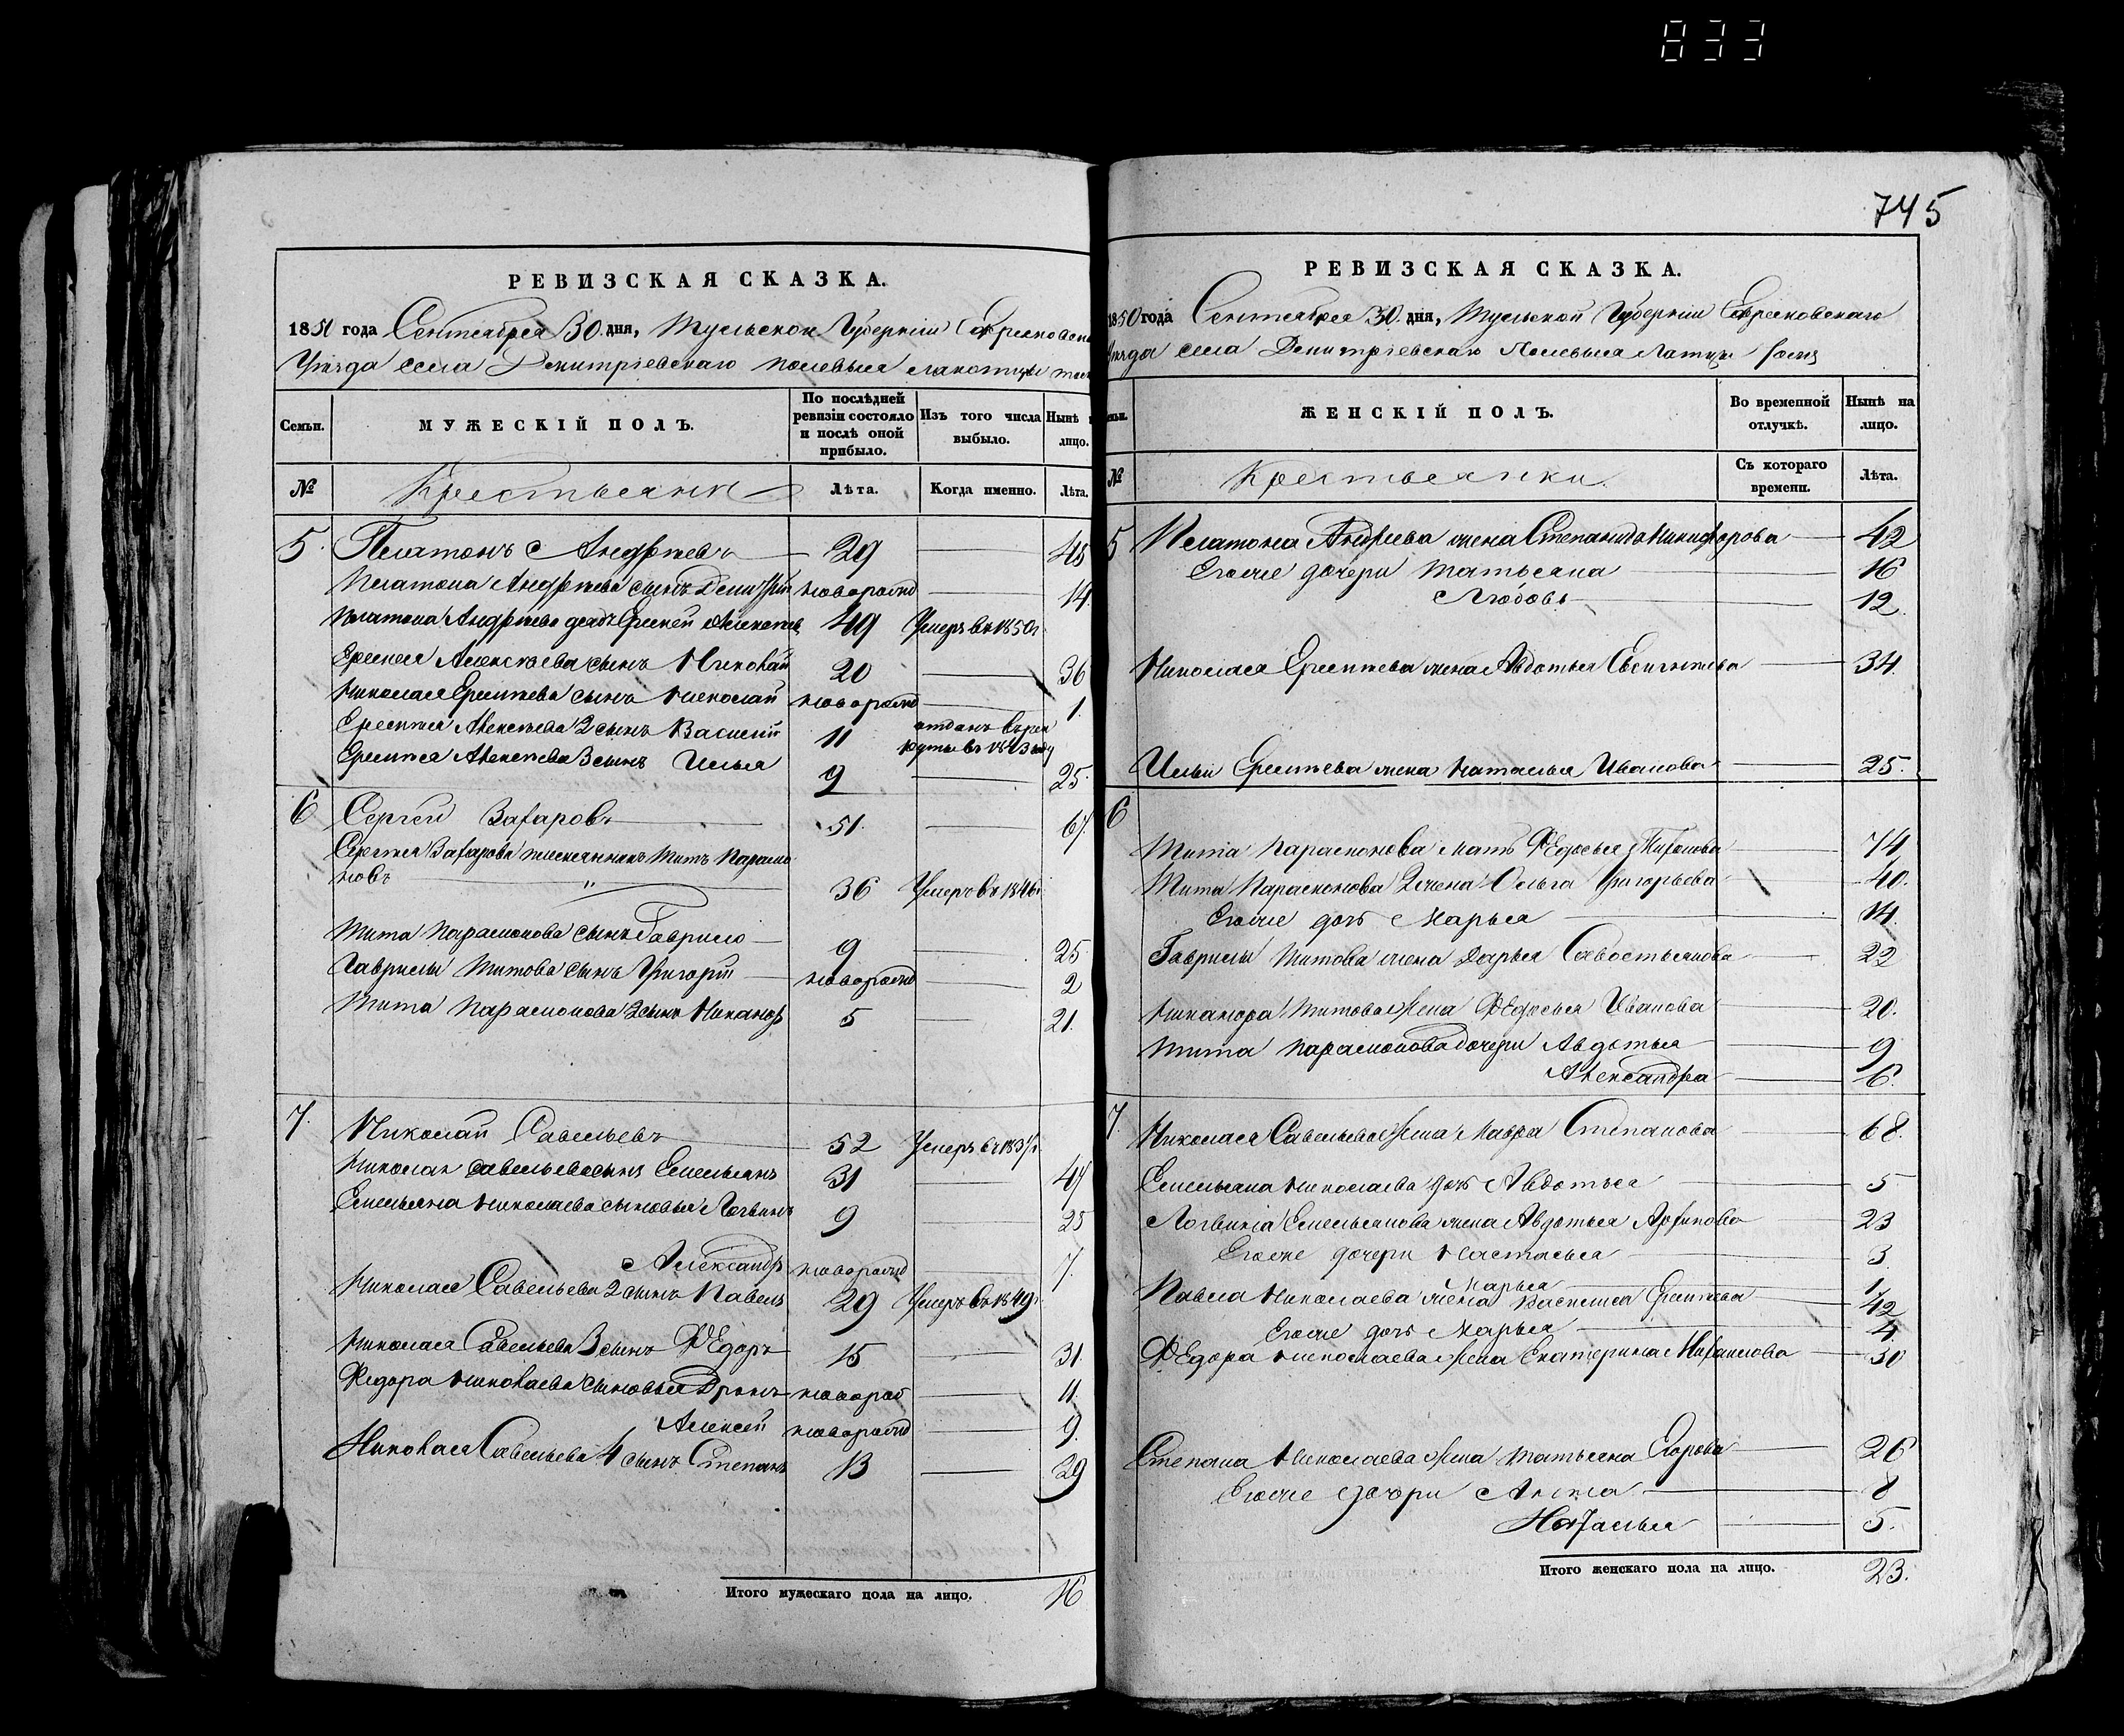 833
745
РЕВИЗСКАЯ СКАЗКА.
1850 года Сентября 30 дня, Тульской Губернии Ефремовска
Уезда села Дмитріевскаго
Семьи. МУЖЕСКІЙ ПОЛЪ. По послѣдней ревизіи состояло и послѣ оной прибыло. Изъ того числа выбыло. Нынѣ лицо.
№ Крестьяне Лѣта. Когда именно. Лѣта.
5. Платонъ Андреевъ 29 45
Платона Андреева сынъ Дмитрій новорожд 14
Платона Андреева дядя Ермей Алексеевъ 49 Умеръ въ 1850г
Ермея Алексеева сынъ Николай 20 36
Николая Ермеева сынъ Николай новорожд 1.
Ермея Алексеева 2 сынъ Василій 11 отданъ въ рек
руты въ 1843 году
Ермея Алексеева 3 сынъ Илья 9 25.
6 Сергей Захаровъ 51. 67.
Сергея Захарова племянникъ Титъ Парамо
новъ " 36 Умеръ въ 1846г
Тита Парамонова сынъ Гаврило 9 25
Гаврилы Титова сынъ Григорій новорожд 2
Тита Парамонова 2 сынъ Никаноръ 5 21.
7. Николай Савельевъ 52 Умеръ въ 1837г
Николая Савельева сынъ Емельянъ 31 47
Емельяна Николаева сыновья Логвинъ 9 25
Александръ новорожд 7.
Николая Савельева 2 сынъ Павелъ 29 Умеръ въ 1849г
Николая Савельева 3 сынъ Федоръ 15 31.
Федора Николаева сыновья Дронъ новорож 11.
Алексей новорожд 9.
Николая Савельева 4 сынъ Степанъ 13 29
Итого мужескаго пола на лицо. 16
РЕВИЗСКАЯ СКАЗКА.
1850 года Сентября 30 дня, Тульской Губерніи Ефремовскаго
Уезда села Дмитріевскаго
Семьи. ЖЕНСКІЙ ПОЛЪ. Во временной отлучкѣ. Нынѣ на лицо.
№ Крестьянки. Съ котораго времени. Лѣта.
5 Платона Андреева жена Степанида Никифорова 42
Егоже дочери Татьяна 16
Любовь 12.
Николая Ермеева жена Авдотья Евсигнеева 34.
Ильи Ермеева жена Наталья Иванова 25.
6
Тита Парамонова мать Федосья 74
Тита Парамонова 2 жена Ольга Григорьева 40.
Егоже дочь Марья 14.
Гаврилы Титова жена Дарья Савостьянова 22
Никанора Титова жена Федосья Иванова 20.
Тита Парамонова дочери Авдотья 9
Александра 6.
7. Николая Савельева жена Мавра Степанова 68.
Емельяна Николаева дочь Авдотья 5
Логвина Емельянова жена Авдотья Архипова 23
Егоже дочери Настасья 3
Марья 1
Павла Николаева жена Василиса Ермеева 42
Егоже дочь Марья 4.
Федора Николаева жена Екатерина Михаилова 30
Степана Николаева жена Татьяна Егорова 26
Егоже дочери Анна 8
Наталья 5.
Итого женскаго пола на лицо. 23.